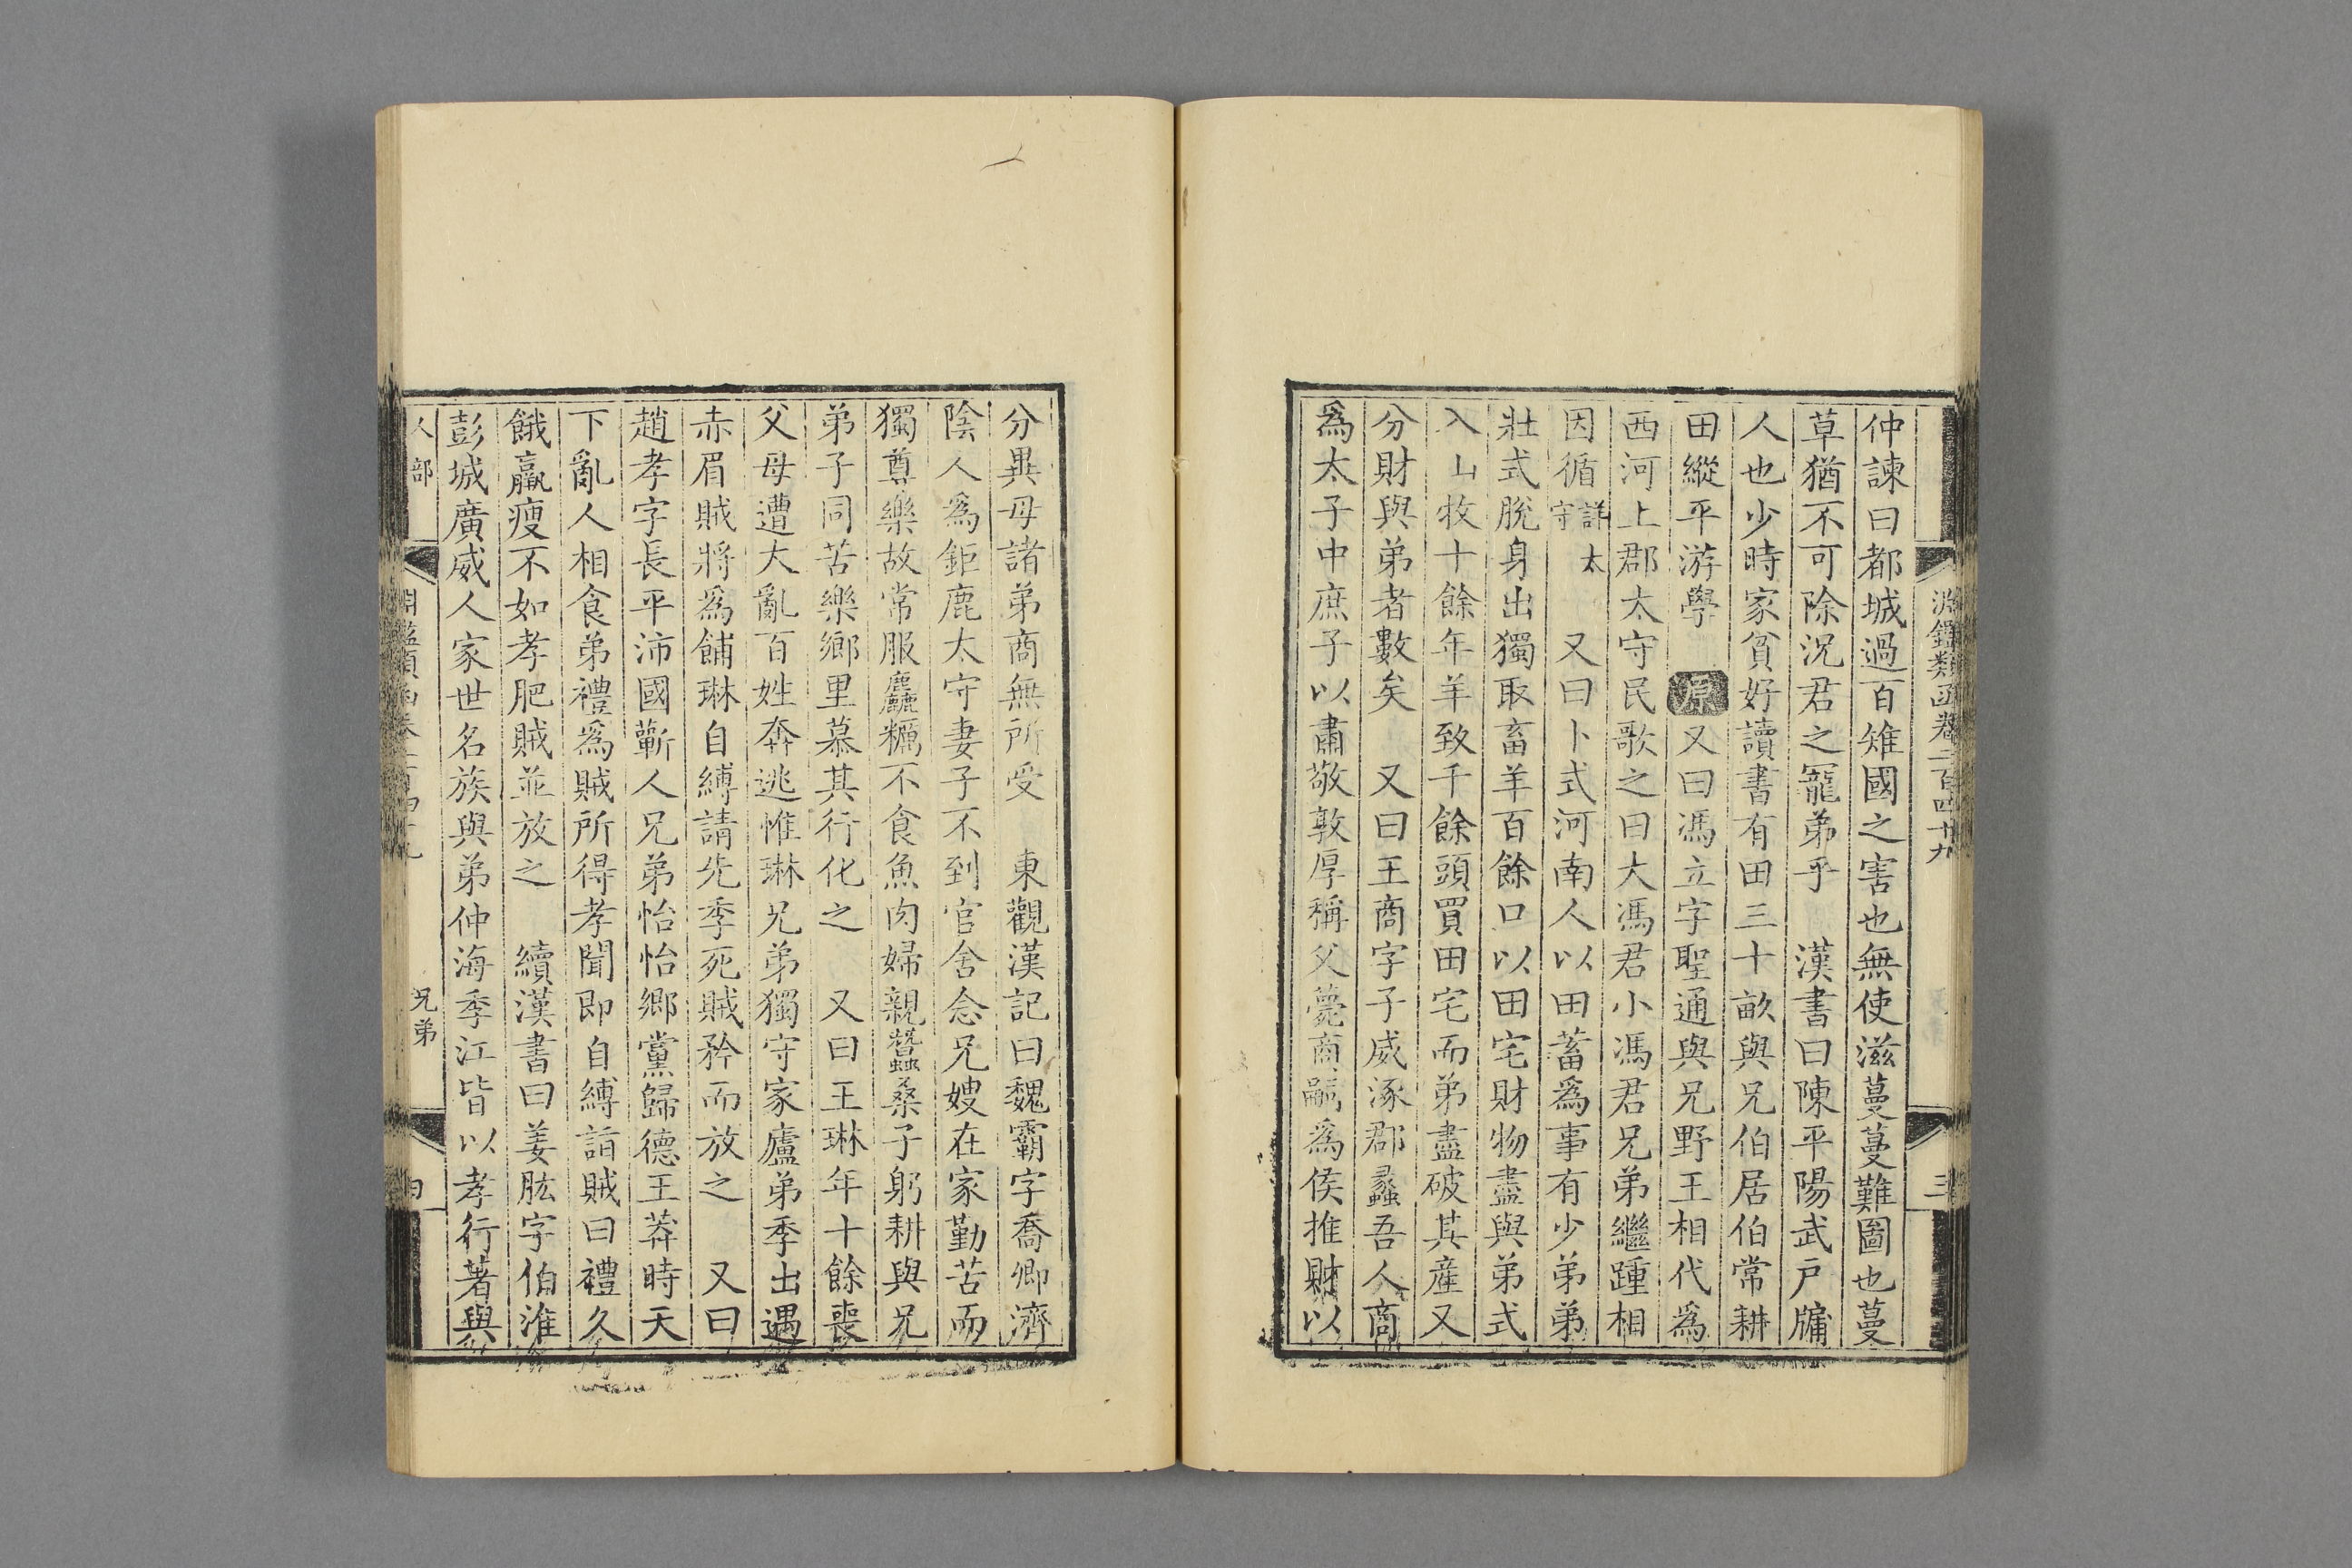 淵鑑類函卷二百四十九
三
仲諫曰都城過百雉國之害也無使滋蔓蔓難圖也蔓
草猶不可除況君之寵弟乎　漢書曰陳平陽武戶牖
人也少時家貧好讀書有田三十畝與兄伯居伯常耕
田縱平游學　原又曰馮立字聖通與兄野王相代為
西河上郡太守民歌之曰大馮君小馮君兄弟繼踵相
因循詳太守　又曰卜式河南人以田蓄為事有少弟弟
壯式脫身出獨取畜羊百餘口以田宅財物盡與弟式
入山牧十餘年羊致千餘頭買田宅而弟盡破其產又
分財與弟者數矣　又曰王商字子威涿郡蠡吾人商
為太子中庶子以肅敬敦厚稱父薨商嗣為侯推財以
分異母諸弟商無所受　東觀漢記曰魏霸字喬卿濟
陰人為鉅鹿太守妻子不到官舍念兄嫂在家勤苦而
獨尊樂故常服麤糲不食魚肉婦親蠶桑子躬耕與兄
弟子同苦樂鄉里慕其行化之　又曰王琳年十餘喪
父母遭大亂百姓奔逃惟琳兄弟獨守家廬弟季出遇
赤眉賊將為餔琳自縛請先季死賊矜而放之　又曰
趙孝字長平沛國蘄人兄弟怡怡鄉黨歸德王莽時天
下亂人相食弟禮為賊所得孝聞即自縛詣賊曰禮久
餓羸瘦不如孝肥賊並放之　續漢書曰姜肱字伯淮
彭城廣威人家世名族與弟仲海季江皆以孝行著與
人部
兄弟